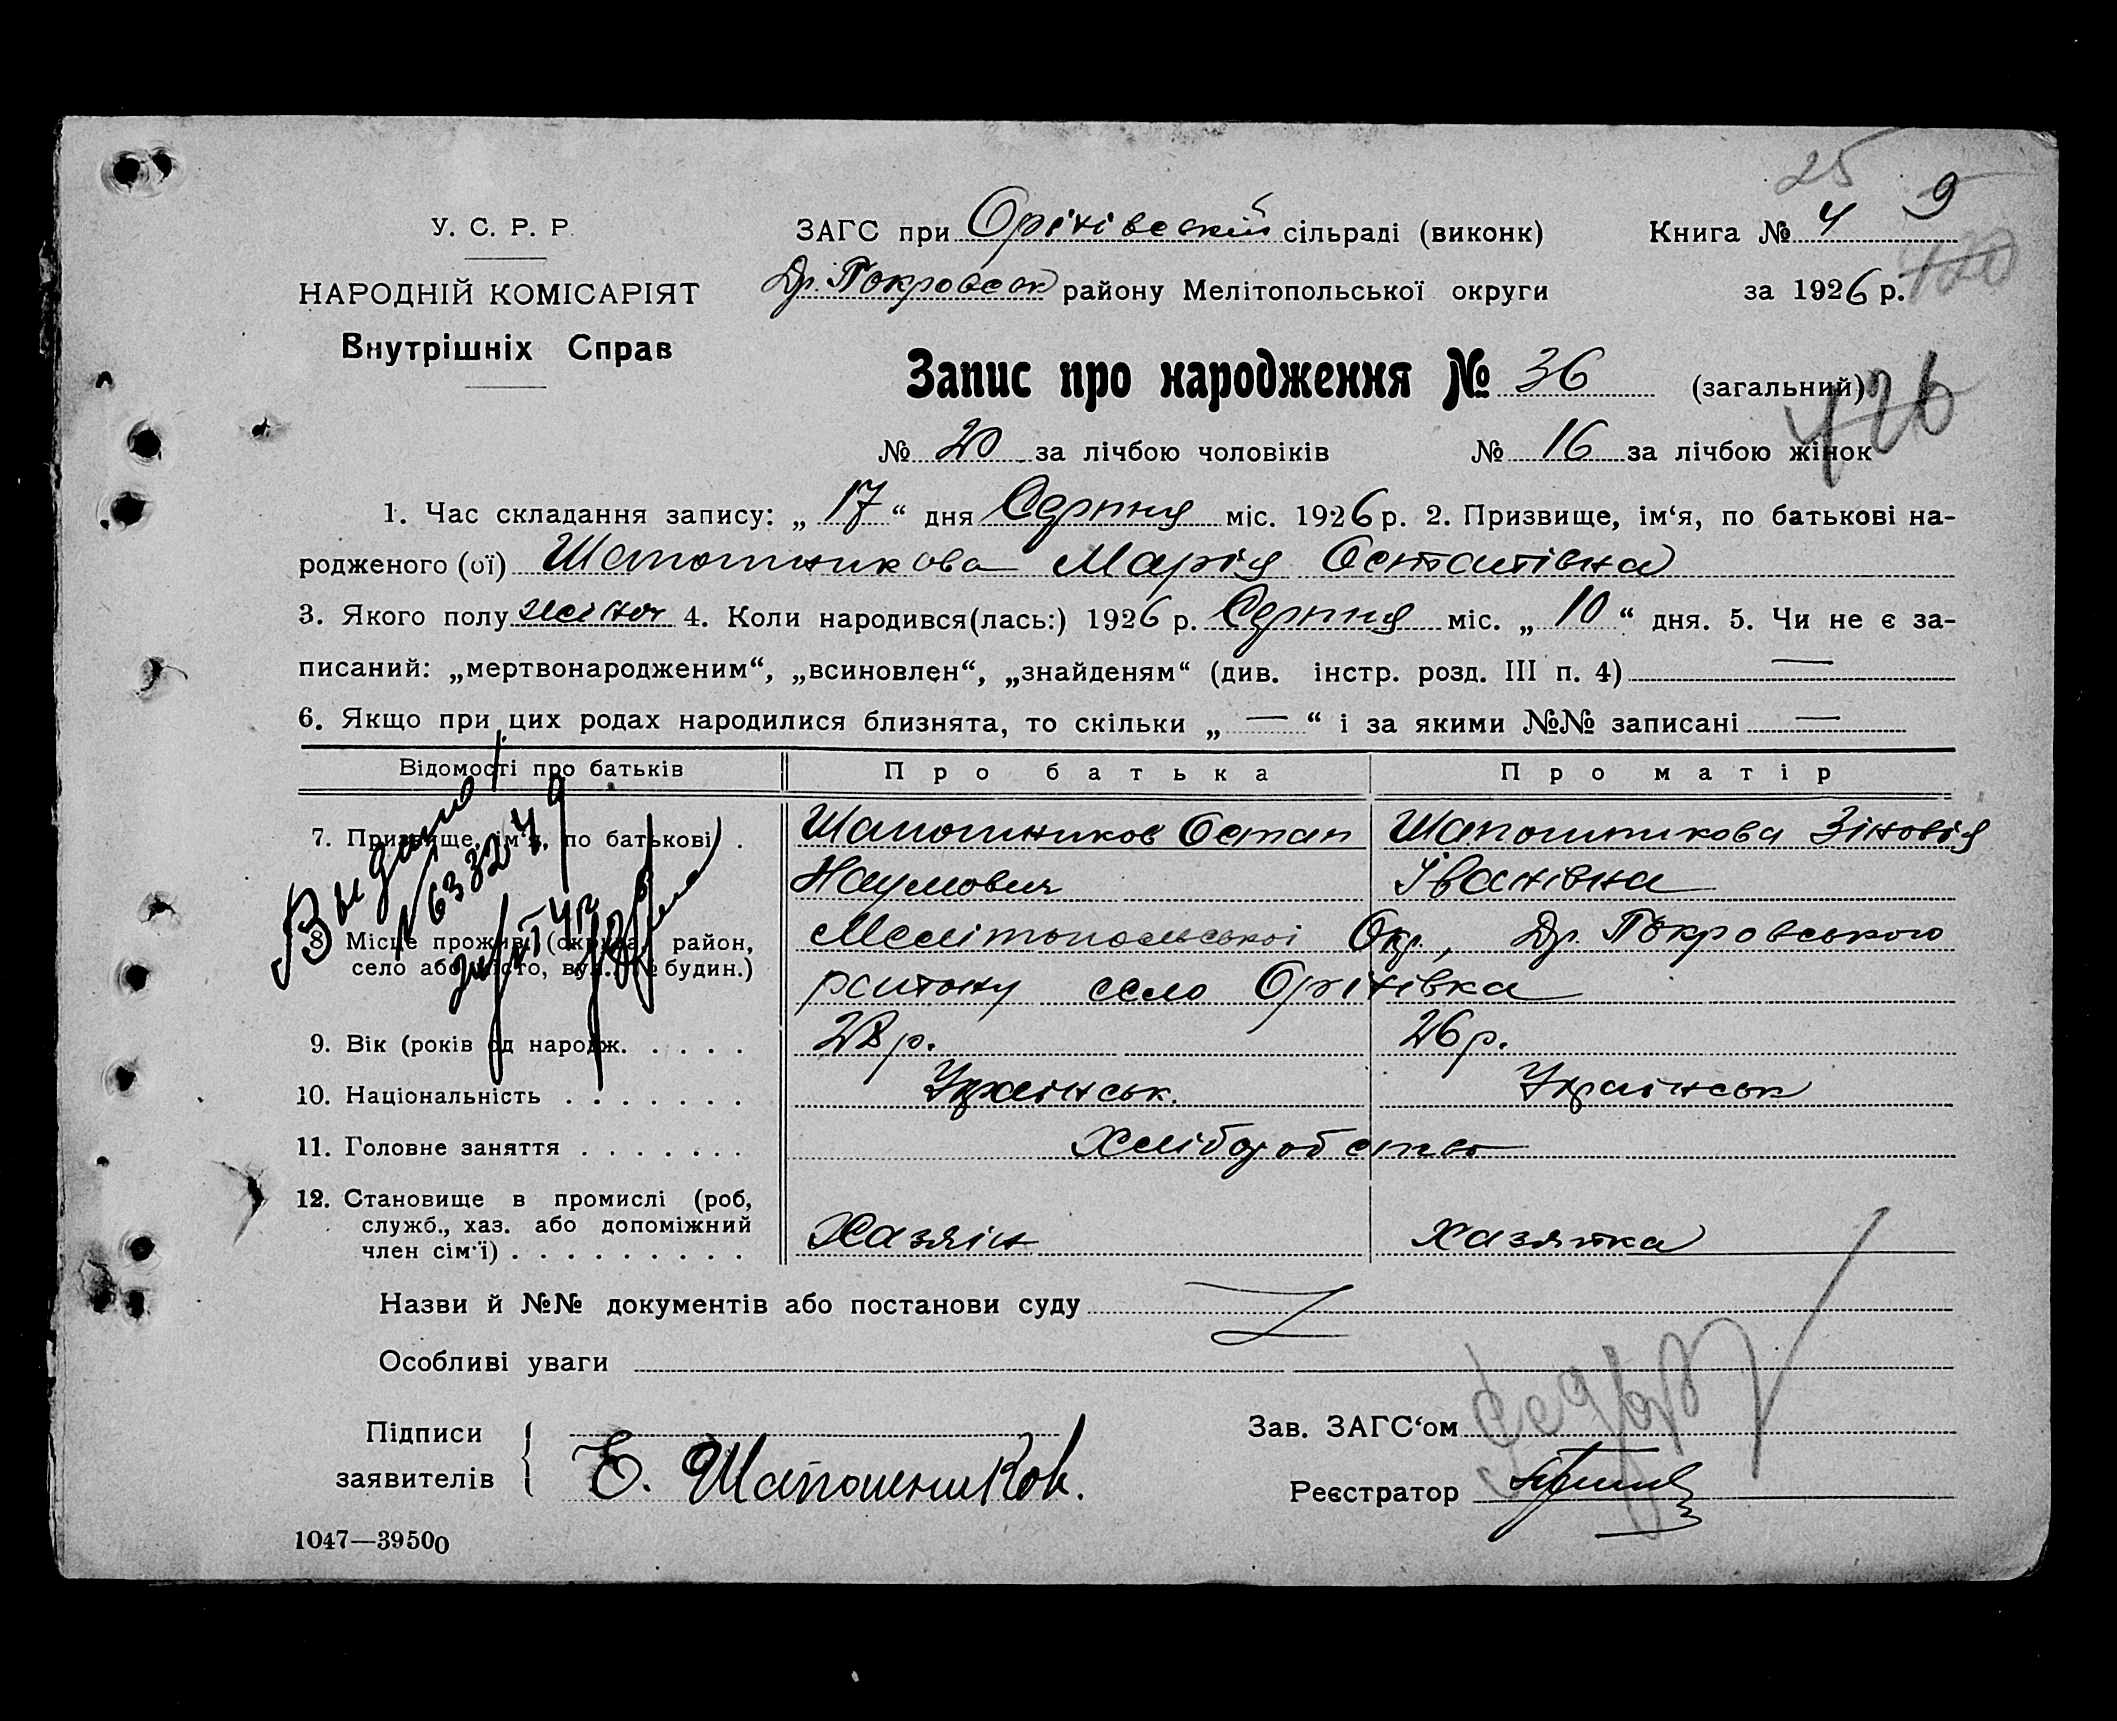 25
У. С. Р. Р.
ЗАГС при Оріхівській сільраді (виконк)
Книга № 4 9
НАРОДНІЙ КОМІСАРІЯТ
Др. Покровськ району Мелітопольської округи
за 1926 р.
420
Внутрішніх Справ
Запис про народження № 36 (загальний)
426
№ 20 за лічбою чоловіків № 16 за лічбою жінок
1. Час складання запису: „ 17 “ дня Серпня міс. 1926 р. 2. Призвище, ім‘я, по батькові на-
родженого (ої) Шапошникова Марія Остапівна
3. Якого полу жіноч 4. Коли народився(лась:) 1926 р. Серпня міс. „ 10 “ дня. 5. Чи не є за-
писаний: „мертвонародженим“, „всиновлен“, „знайденям“ (див. інстр. розд. III п. 4) —
6. Якщо при цих родах народилися близнята, то скільки „ — “ і за якими №№ записані —
Відомості про батьків Про батька Про матір
7. Призвище, ім‘я, по батькові . Шапошников Остап Шапошникова Зіновія
Наумович Іванівна
Выдано
№ 633249
8. Місце прожив. (округа, район, Мелітопольської Окр., Др. Покровського
село або місто, вул., № будин.) району село Оріхівка
9. Вік (років од народж. . . . . . 28 р. 26 р.
10. Національність . . . . . . . Українськ. Українськ
11. Головне заняття . . . . . . . Хліборобство
12. Становище в промислі (роб,
служб., хаз. або допоміжний
член сім‘ї) . . . . . . . . . Хазяїн хазяйка
Назви й №№ документів або постанови суду
Особливі уваги
Підписи
заявителів
Е. Шапошников.
Зав. ЗАГС‘ом
Реєстратор
1047—39500